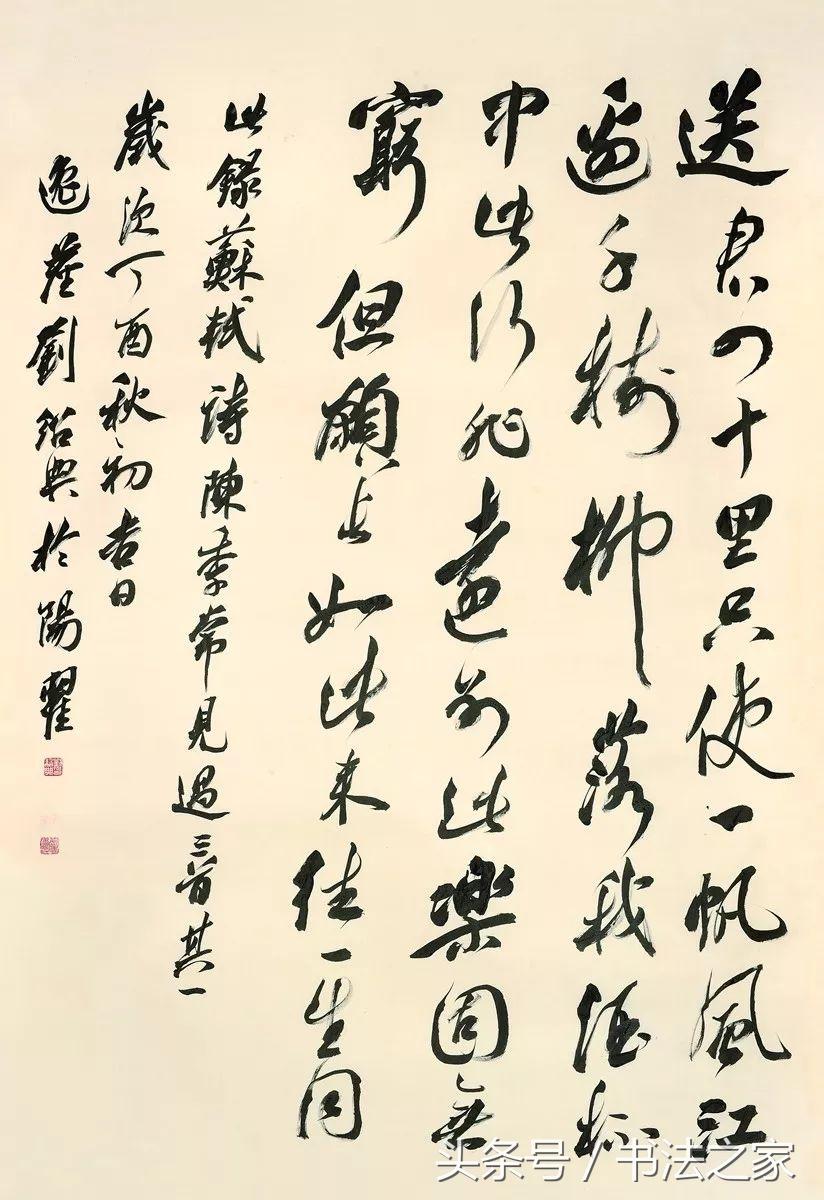 送君四十里只使一帆風江
邊千樹柳落我酒杯
中此行非遠別此樂固無
窮但願長如此來往一生同
此錄蘇軾詩陳季常見過三首其一
歲次丁酉秋初吉日
逸劉紹典於陽翟
头条号 / 书法之家